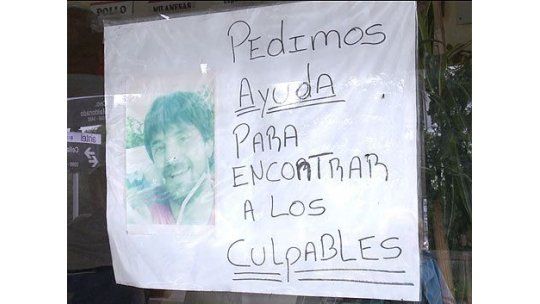 POLLO
MILANESAS
PEDIMOS
AYUDA
PARA
ENCONTRAR
A LOS
CULPABLES
Maldonado
antel